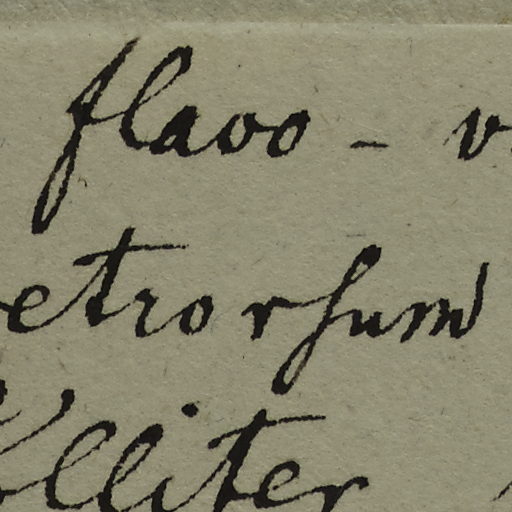 flavo - v
etrorsum
lliter